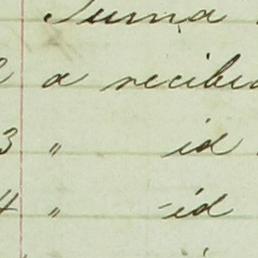 Suma
a recibi
3 " id
4 " -id